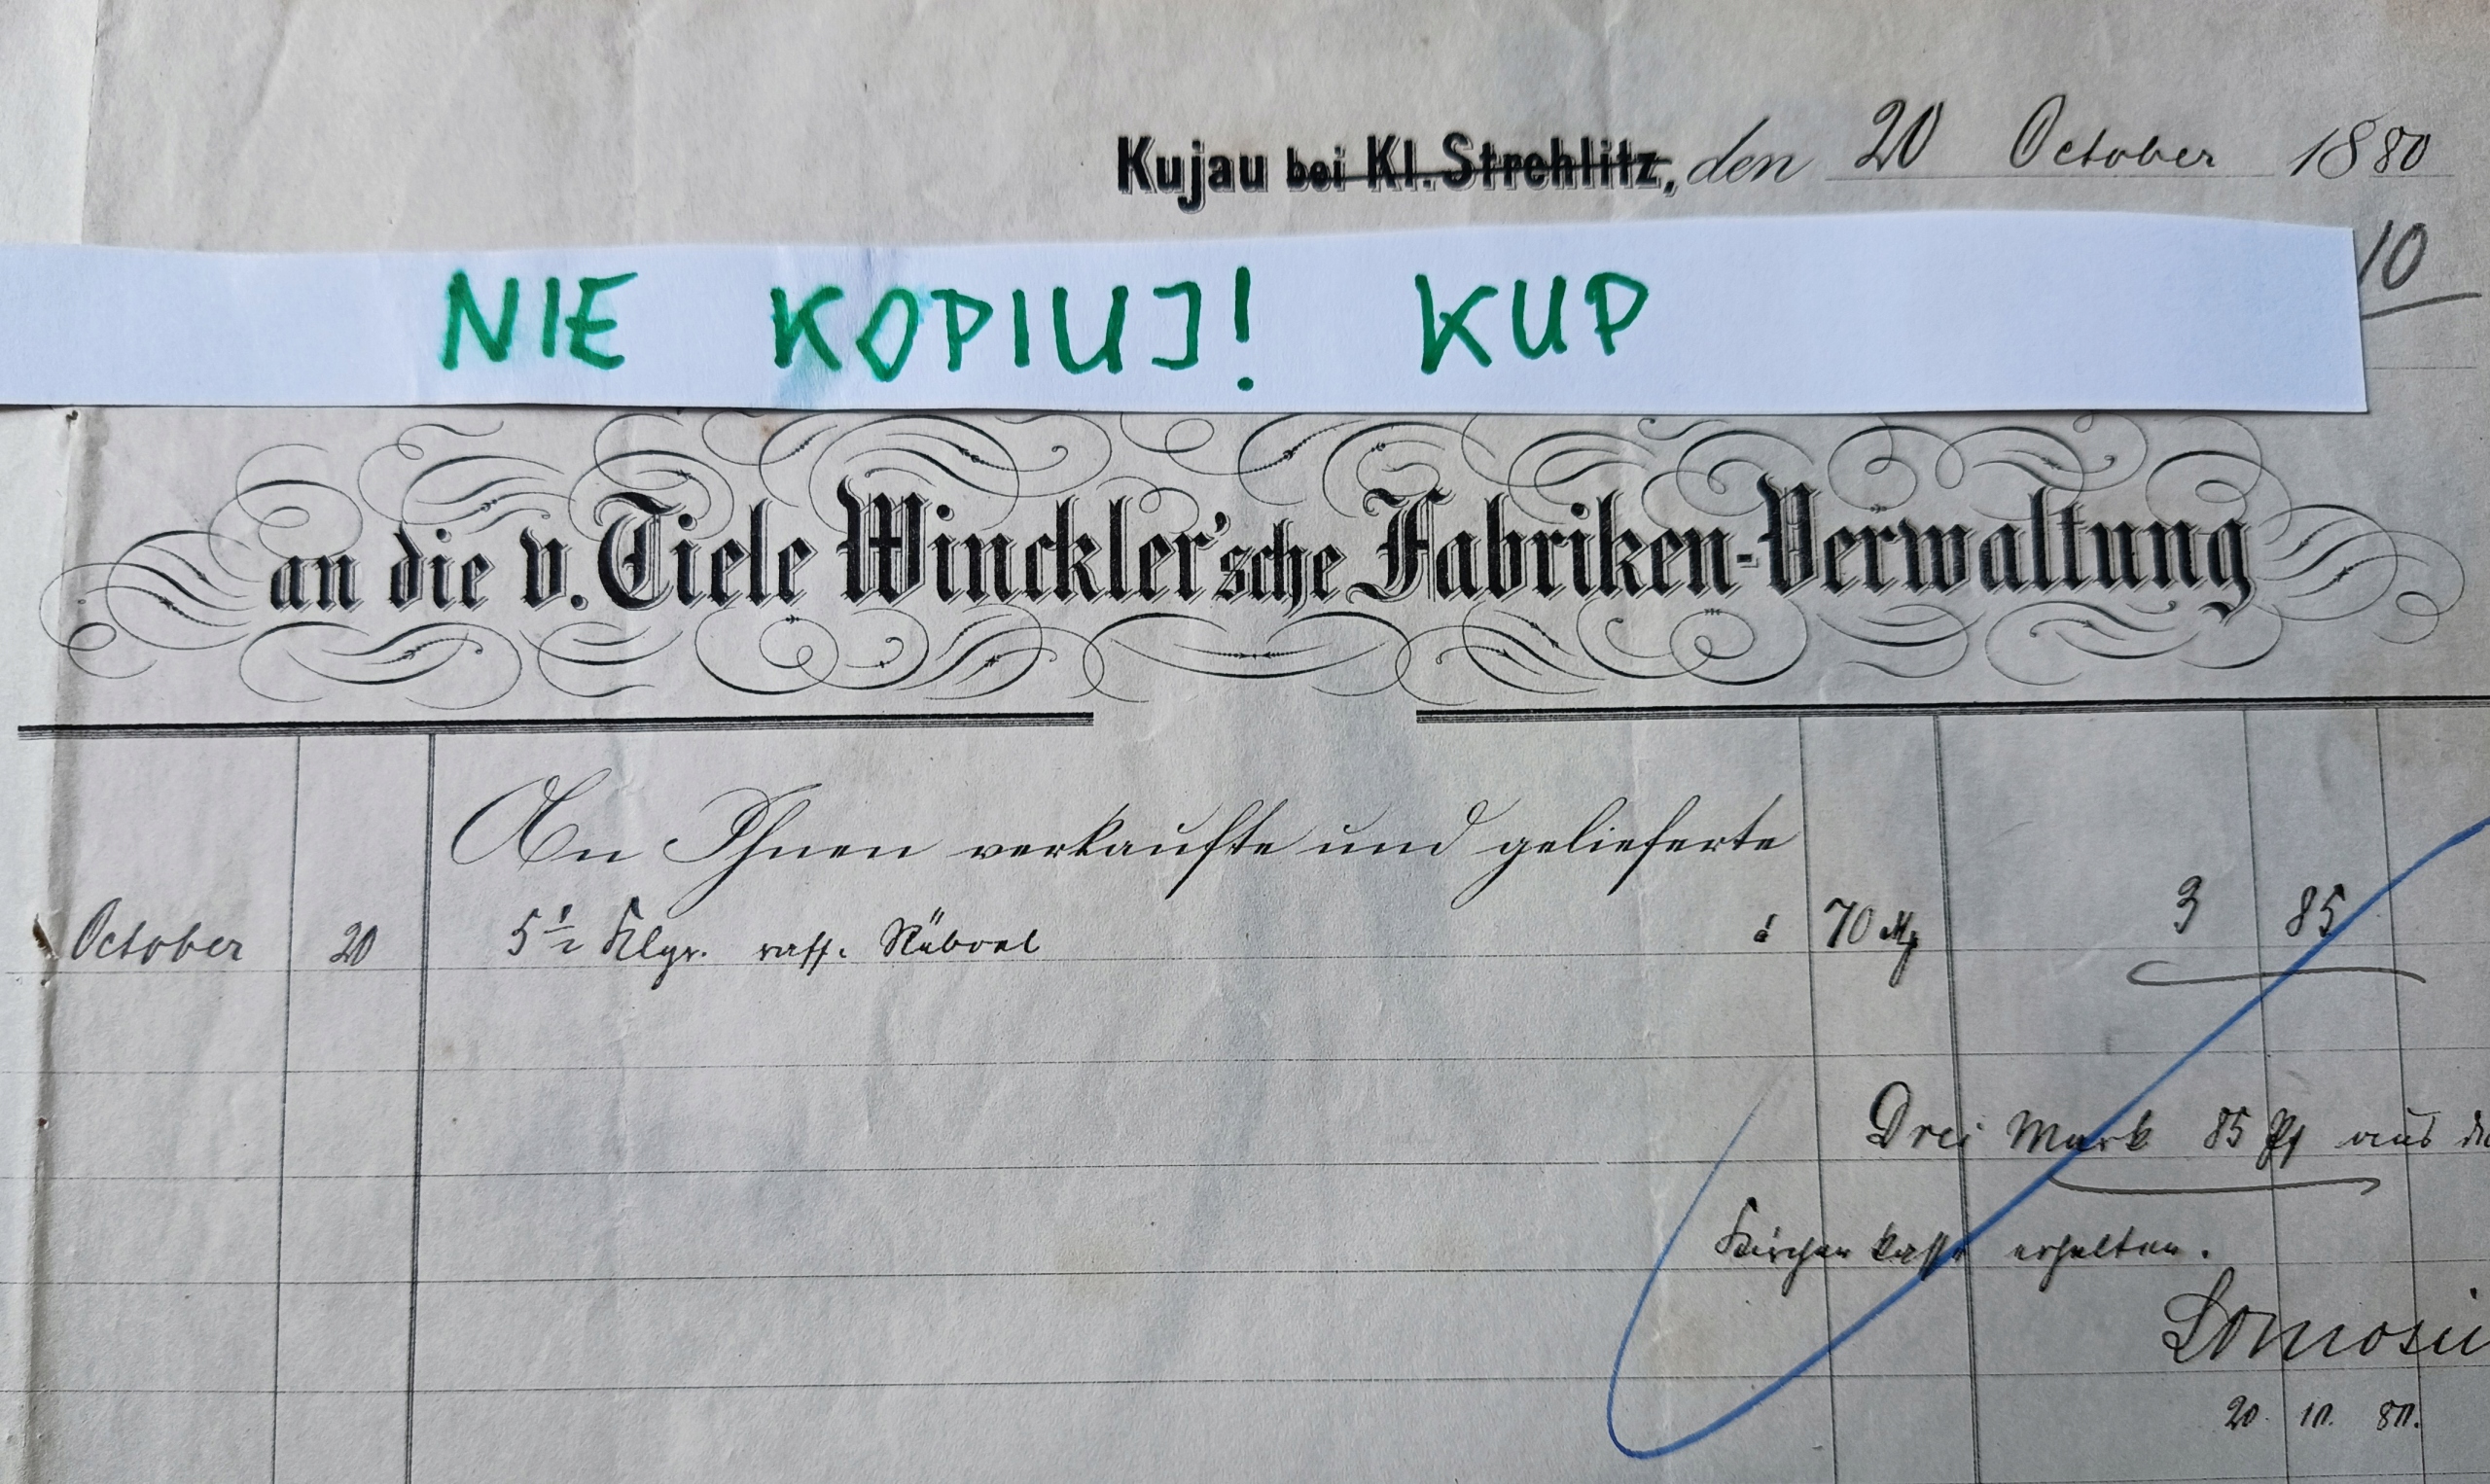 Kujau bei Kl. Strehlitz, den 20 October 1880
10
NIE KOPIUJ! KUP
an die v. Tiele Winckler'sche Fabriken-Verwaltung
An Ihnen verkaufte und gelieferte
October 20 5 1/2 Klgr. raff. Rüboel à 70 Pf 3 85
Drei Mark 85 Pf aus
Kirchenkasse erhalten.
20. 10. 80.